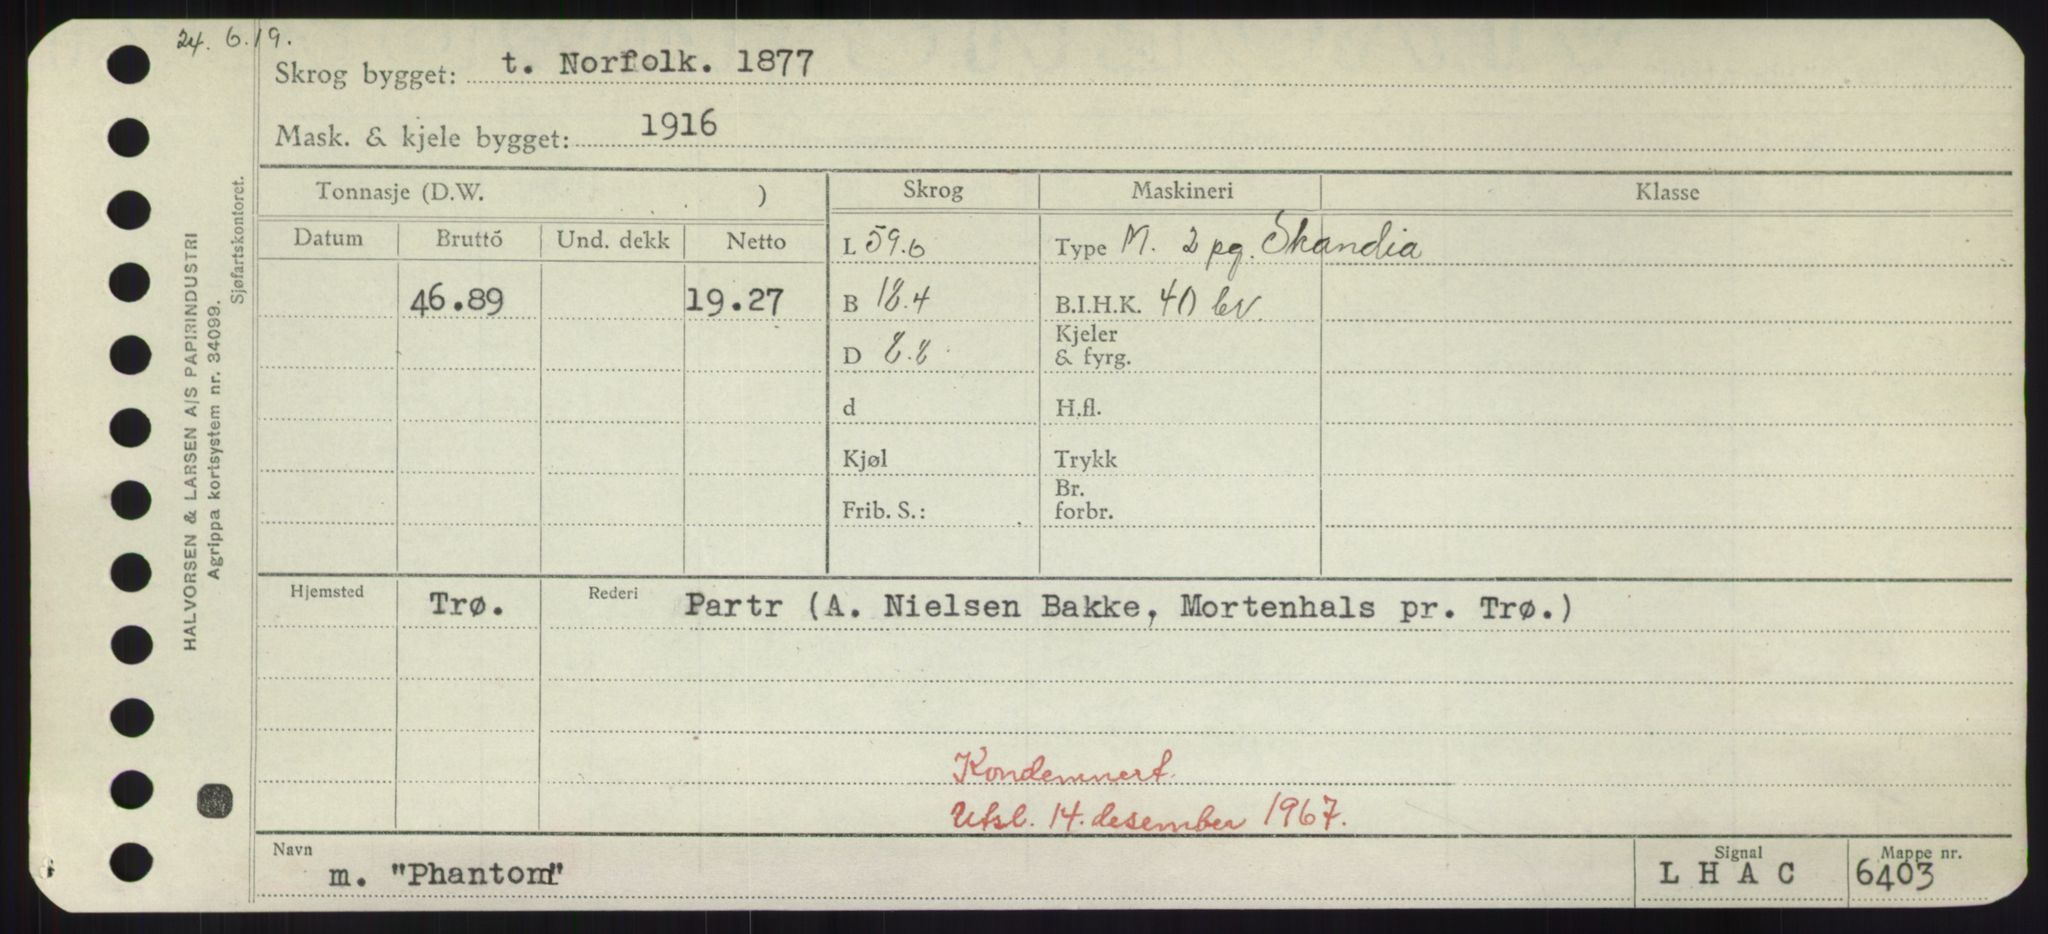 24. 6.19.
Skrog bygget: t. Norfolk. 1877
Mask. & kjele bygget: 1916
Tonnasje (D.W. ) Skrog Maskineri Klasse
Datum Bruttó Und. dekk Netto L 59.6 Type M. 2 pg. Skandia
46.89 19.27 B 18.4 B.I.H.K. 40 bv
Kjeler
D 8.8 & fyrg.
d H.fl.
Kjøl Trykk
Br.
Frib. S.: forbr.
Hjemsted Trø. Rederi Partr (A. Nielsen Bakke, Mortenhals pr. Trø.)
Kondemnert.
Utsl. 14. desember 1967.
Navn Signal Mappe nr.
m. "Phantom" L H A C 6403
HALVORSEN & LARSEN A/S PAPIRINDUSTRI
Agrippa kortsystem nr. 34099.
Sjøfartskontoret.